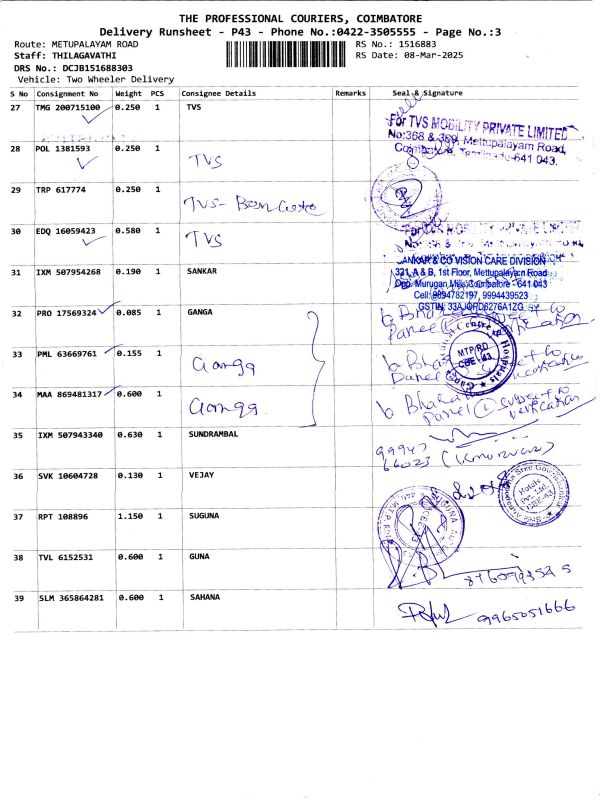 THE PROFESSIONAL COURIERS, COIMBATORE
Delivery Runsheet - P43 - Phone No.:0422-3505555 - Page No.:3
Route: METUPALAYAM ROAD
RS No.: 1516883
Staff: THILAGAVATHI
RS Date: 08-Mar-2025
DRS No.: DCJB151688303
Vehicle: Two Wheeler Delivery
S No Consignment No Weight PCS Consignee Details Remarks Seal & Signature
27 TMG 200715100 0.250 1 TVS
For TVS MOBILITY PRIVATE LIMITED
No:368 & 369, Mettupalayam Road,
Coimbatore, Tamilnadu-641 043.
28 POL 1381593 0.250 1 TVS
29 TRP 617774 0.250 1 TVS-
30 EDQ 16059423 0.580 1 TVS
SANKAR & CO VISION CARE DIVISION
321, A & B, 1st Floor, Mettupalayam Road
Opp. Murugan Mills, Coimbatore - 641 043
Cell: 9894782197, 9994439523
31 IXM 507954268 0.190 1 SANKAR
32 PRO 17569324 0.085 1 GANGA
MTP.RD
CBE-43
33 PML 63669761 0.155 1 Ganga
34 MAA 869481317 0.600 1 Ganga
35 IXM 507943340 0.630 1 SUNDRAMBAL
36 SVK 10604728 0.130 1 VEJAY
Hotels
Pvt. Ltd.
CBE-43
37 RPT 108896 1.150 1 SUGUNA
38 TVL 6152531 0.600 1 GUNA
39 SLM 365864281 0.600 1 SAHANA
9965051666